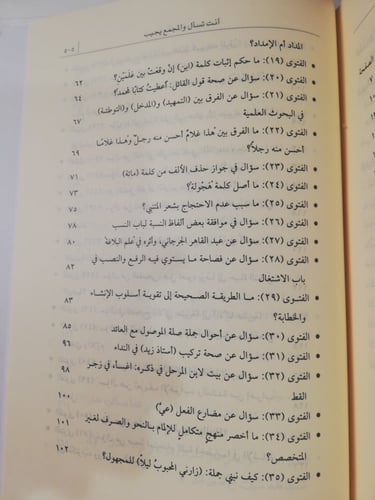 أنت تسأل والمجمع يجيب
٥٠٥
المداد أم الإمداد؟
الفتوى (١٩): ما حكم إثبات كلمة (ابن) إنْ وقعتْ بين عَلَمَيْنِ؟ ٦٢
الفتوى (٢٠): سؤال عن صحة قول القائل: أعطيتُ كتابًا لمحمد؟ ٦٤
الفتوى (٢١): سؤال عن الفرق بين (التمهيد) و(المدخل) و(التوطئة)
في البحوث العلمية ٦٧
الفتوى (٢٢): ما الفرق بين هذا غلامٌ أحسن منه رجلٌ وهذا غلامًا
أحسن منه رجلاً؟ ٦٩
الفتوى (٢٣): سؤال في جواز حذف الألف من كلمة (مائة) ٧١
الفتوى (٢٤): ما أصل كلمة هَجُولة؟ ٧٣
الفتوى (٢٥): ما سبب عدم الاحتجاج بشعر المتنبي؟ ٧٥
الفتوى (٢٦): سؤال في موافقة بعض ألفاظ النسبة لباب النسب ٧٨
الفتوى (٢٧): سؤال عن عبد القاهر الجرجاني، وأثره في علم البلاغة ٨٠
الفتوى (٢٨): سؤال عن فصاحة ما يستوي فيه الرفع والنصب في
باب الاشتغال ٨٢
الفتوى (٢٩): ما الطريقة الصحيحة إلى تقوية أسلوب الإنشاء
والخطابة؟ ٨٣
الفتوى (٣٠): سؤال عن أحوال جملة صلة الموصول مع العائد ٨٥
الفتوى (٣١): سؤال عن صحة تركيب (أستاذ زيد) في النداء ٩٦
الفتوى (٣٢): سؤال عن بيت لابن المرحل في ذكره: اغسأ، في زجر
القط ٩٨
الفتوى (٣٣): سؤال عن مضارع الفعل (عيَّ) ١٠٠
الفتوى (٣٤): ما أخصر منهجٍ متكاملٍ للإلمام بالنحو والصرف لغير
المتخصص؟ ١٠١
الفتوى (٣٥): كيف نبني جملة: (زارني المحبوبُ ليلاً) للمجهول؟ ١٠٢